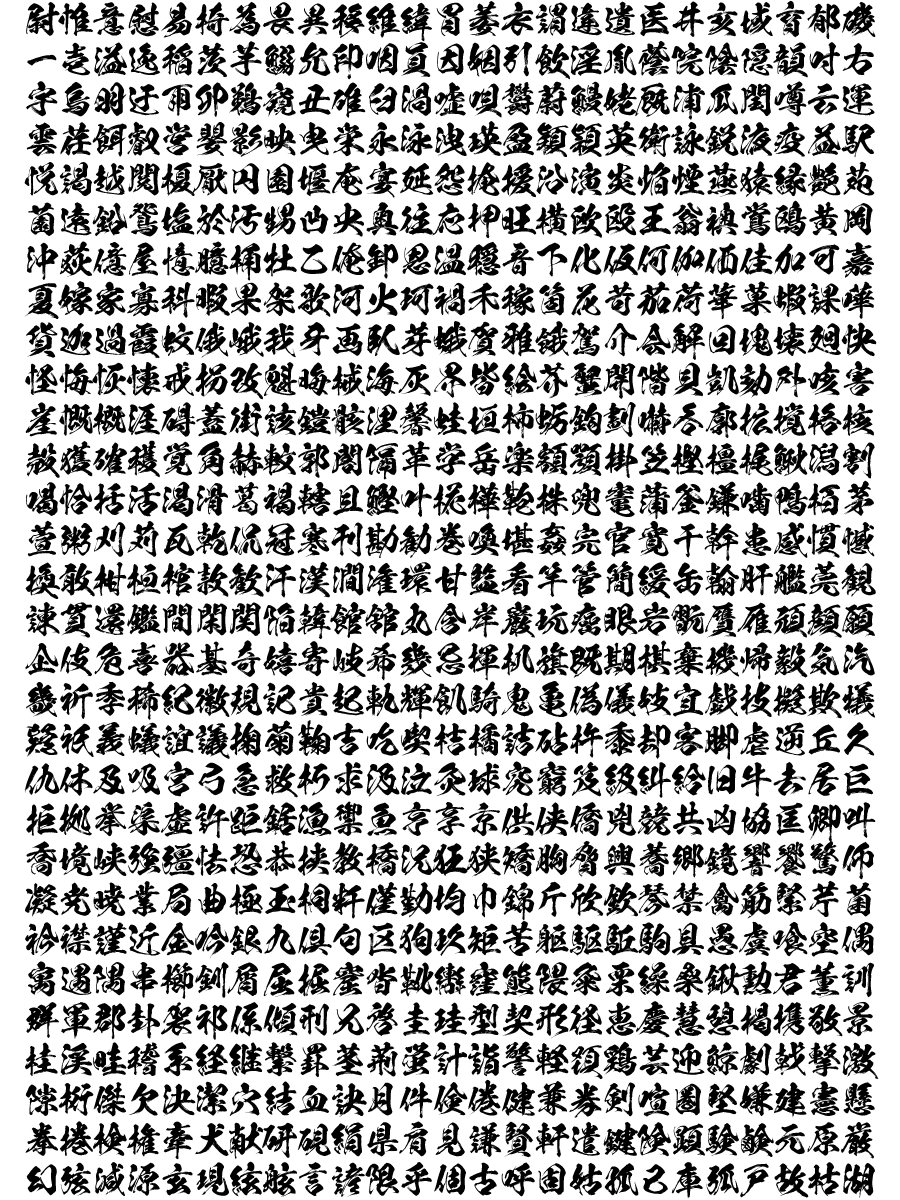 尉惟意慰易椅為畏異移維緯胃萎衣謂違遺医井亥域育郁磯
一壱溢逸稲茨芋鰯允印咽員因姻引飲淫胤蔭院陰隠韻吋右
宇烏羽迂雨卯鵜窺丑碓臼渦嘘唄鬱蔚鰻姥厩浦瓜閏噂云運
雲荏餌叡営嬰影映曳栄永泳洩瑛盈穎頴英衛詠鋭液疫益駅
悦謁越閲榎厭円園堰奄宴延怨掩援沿演炎焔煙燕猿縁艶苑
薗遠鉛鴛塩於汚甥凹央奥往応押旺横欧殴王翁襖鴬鴎黄岡
沖荻億屋憶臆桶牡乙俺卸恩温穏音下化仮何伽価佳加可嘉
夏嫁家寡科暇果架歌河火珂禍禾稼箇花苛茄荷華菓蝦課嘩
貨迦過霞蚊俄峨我牙画臥芽蛾賀雅餓駕介会解回塊壊廻快
怪悔恢懐戒拐改魁晦械海灰界皆絵芥蟹開階貝凱劾外咳害
崖慨概涯碍蓋街該鎧骸浬馨蛙垣柿蛎鈎劃嚇各廓拡撹格核
殻獲確穫覚角赫較郭閣隔革学岳楽額顎掛笠樫橿梶鰍潟割
喝恰括活渇滑葛褐轄且鰹叶椛樺鞄株兜竃蒲釜鎌噛鴨栢茅
萱粥刈苅瓦乾侃冠寒刊勘勧巻喚堪姦完官寛干幹患感慣憾
換敢柑桓棺款歓汗漢澗潅環甘監看竿管簡緩缶翰肝艦莞観
諌貫還鑑間閑関陥韓館舘丸含岸巌玩癌眼岩翫贋雁頑顔願
企伎危喜器基奇嬉寄岐希幾忌揮机旗既期棋棄機帰毅気汽
畿祈季稀紀徽規記貴起軌輝飢騎鬼亀偽儀妓宜戯技擬欺犠
疑祇義蟻誼議掬菊鞠吉吃喫桔橘詰砧杵黍却客脚虐逆丘久
仇休及吸宮弓急救朽求汲泣灸球究窮笈級糾給旧牛去居巨
拒拠挙渠虚許距鋸漁禦魚亨享京供侠僑兇競共凶協匡卿叫
喬境峡強彊怯恐恭挟教橋況狂狭矯胸脅興蕎郷鏡響饗驚仰
凝尭暁業局曲極玉桐粁僅勤均巾錦斤欣欽琴禁禽筋緊芹菌
衿襟謹近金吟銀九倶句区狗玖矩苦躯駆駈駒具愚虞喰空偶
寓遇隅串櫛釧屑屈掘窟沓靴轡窪熊隈粂栗繰桑鍬勲君薫訓
群軍郡卦袈祁係傾刑兄啓圭珪型契形径恵慶慧憩掲携敬景
桂渓畦稽系経継繋罫茎荊蛍計詣警軽頚鶏芸迎鯨劇戟撃激
隙桁傑欠決潔穴結血訣月件倹倦健兼券剣喧圏堅嫌建憲懸
拳捲検権牽犬献研硯絹県肩見謙賢軒遣鍵険顕験鹸元原厳
幻弦減源玄現絃舷言諺限乎個古呼固姑孤己庫弧戸故枯湖